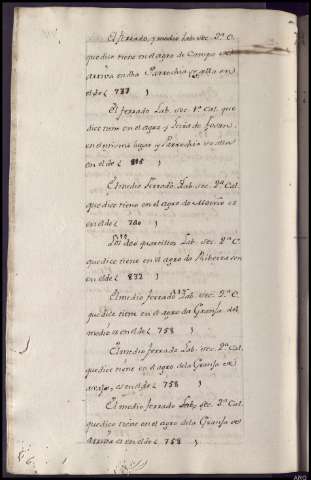 El ferrado, y medio Lab. sec. 2ª C.
que dice tiene en el agro de Campo de
arriva en dha Parrochia es alla en
el de ( 727 )
El ferrado Lab. sec. 1ª Cal. que
dice tiene en el agro y
en misma lugar y Parrochia es alla
en el de ( 815 )
El medio Ferrado Lab. sec. 2ª Cal.
que dice tiene en el agro de es
en el de ( 780 )
Los dos quartillos Lab. sec. 2ª C.
que dice tiene en el agro de Ribeza son
en el de ( 832 )
El medio ferrado Lab. sec. 2ª C.
que dice tiene en el agro da Granja del
medio es en el de ( 758 )
El medio ferrado Lab. sec. 2ª Cal.
que dice tiene en el agro dela Granja de
es en el de ( 758 )
El medio ferrado Lab. sec. 2ª Cal.
que dice tiene en el agro dela Granja de
arriva es en el de ( 758 )